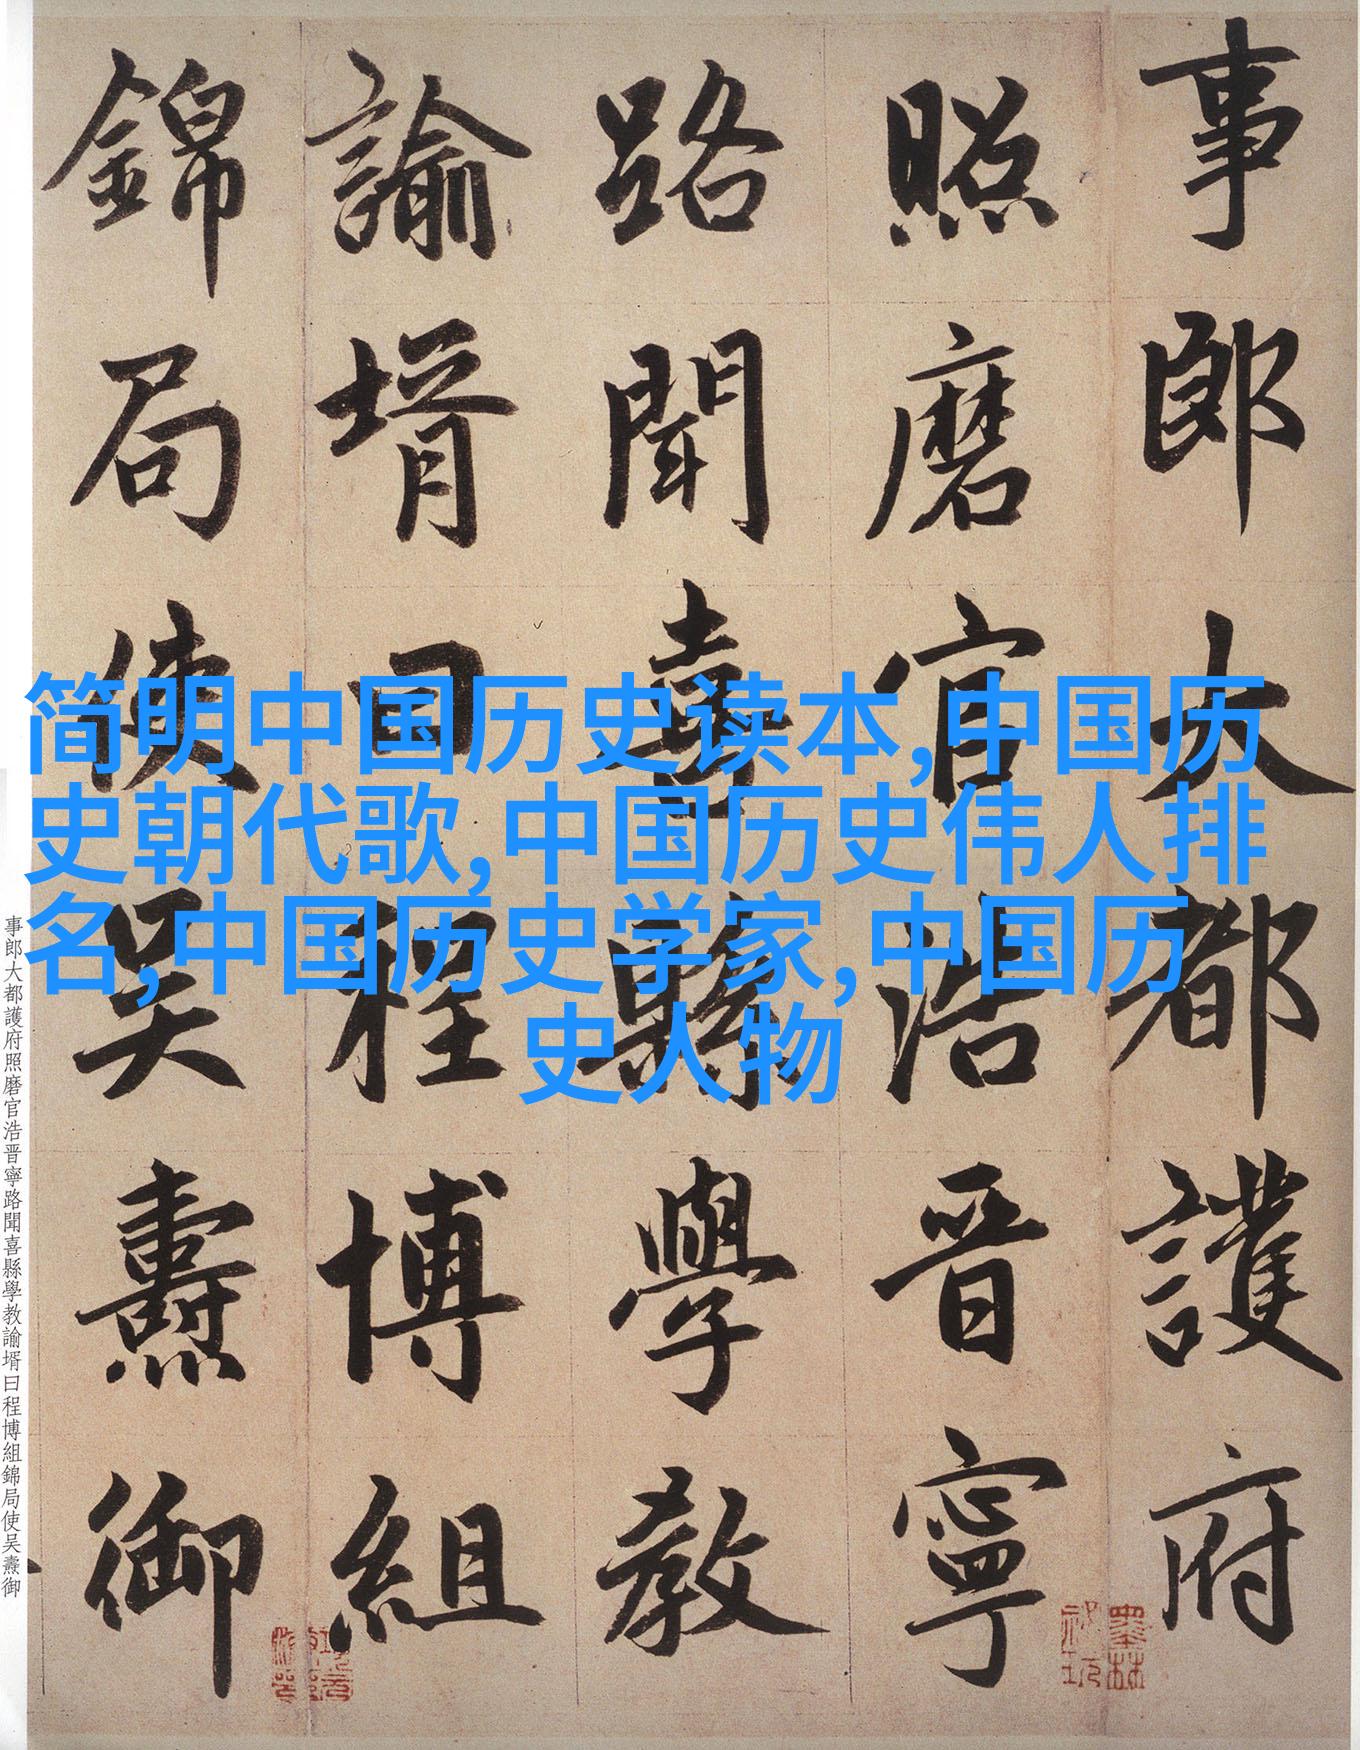 事郎大都護府
照磨官浩晋寧
路聞喜縣學教
諭壻曰程博組
錦局使吴燾御
简明中国历史读本,中国历
史朝代歌,中国历史伟人排
名,中国历史学家,中国历
史人物
事郎大都護府照磨官浩晋寧路聞喜縣學教諭壻曰程博組錦局使吴燾御